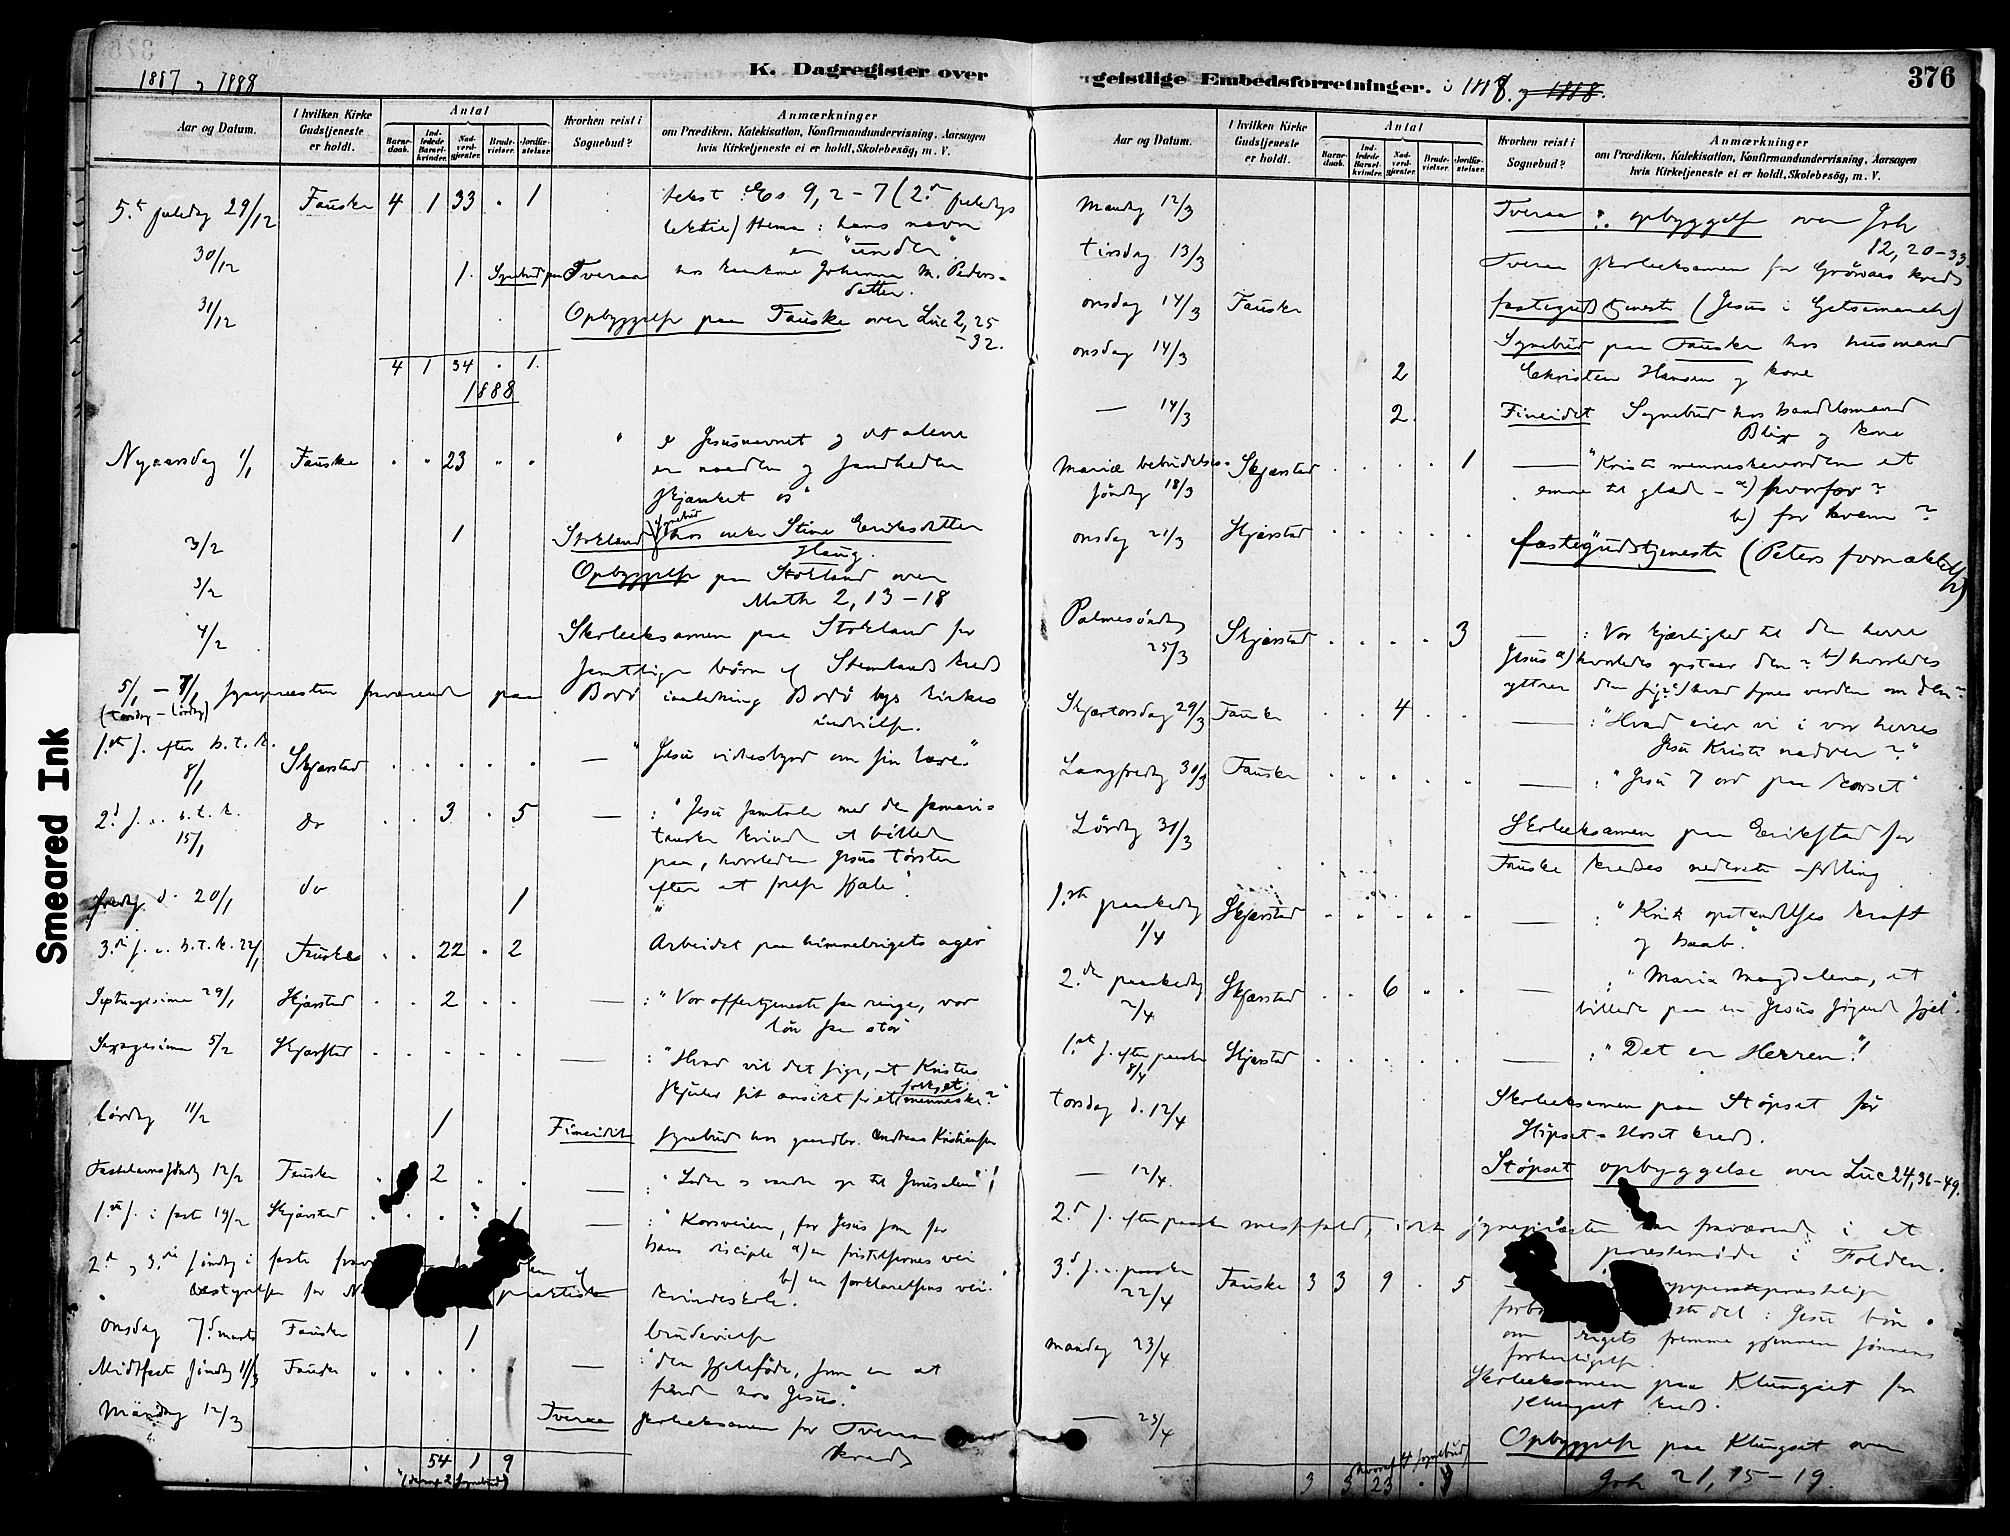 1887 og 1888
K. Dagregister over
Aar og Datum.
I hvilken Kirke Gudstjeneste er holdt.
Antal
Barnedaab.
Indledede Barselkvinder.
Nadverdgjester.
Brudevielser.
Jordfæstelser.
Hvorhen reist i Sognebud?
Anmærkninger
om Prædiken, Katekisation, Konfirmandundervisning, Aarsagen
hvis Kirketjeneste ei er holdt, Skolebesøg, m. V.
5.t juledag 29/12 Fauske 4 1 33 . 1 tekst: Es 9, 2-7 (2.d juledags
lektie) thema: hans navn
er "under".
30/12 1. Sognebud paa Tveraa hos Johanna M. Peders-
datter.
31/12 Opbyggelse paa Fauske over Luc 2, 25
-32.
4 1 34 . 1.
1888
Nyaarsdag 1/1 Fauske . . 23 . . " Jesusnavnet og det alene
er naaden og sandheden
skjænket os"
3/2 1 Stokland Sognebud hos enke Stine Eriksdatter
Haug.
3/2 Opbyggelse paa Stokland over
Math 2, 13-18
4/2 Skoleeksamen paa Stokland for
samtlige børn af kreds
5/1 - 7/1 sognepresten fraværende paa Bodø anledning Bodø bys kirkes
(torsdag - lørdag) indvielse.
1.st s. efter h. t. k. 8/1 Skjærstad . . . . . — "Jesu vidnesbyrd om sin lære"
2.d s. e. h. t. k. 15/1 do . . 3 . 5 — : "Jesu samtale med den samari-
tanske kvinde et billede
paa, hvorledes Jesus tørster
efter at frelse sjæle".
fredag d. 20/1 do 1 "
3.die s. e. h. t. k. 22/1 Fauske . . 22 . 2 Arbeidet paa himmerigets ager"
Septuagesima 29/1 Skjærstad . . 2 . . — : "Vor offertjeneste saa ringe, vor
løn saa stor"
Sexagesima 5/2 Skjærstad . . . . . — : "Hvad vil det sige, at Kristus
skjuler sit ansikt for et folk menneske?"
Lørdag 11/2 1 Fineidet Sognebud hos gaardbr. Andreas Kristiansen
Fastelavnssøndag 12/2 Fauske . 2 . . — : "Lader os vandre op til Jerusalem"!
1.st s. i faste 19/2 Skjærstad . . . . 1 — : "Korsveien, for Jesus som for
hans disciple a) en fristelsernes vei
b) en forklarelsens vei."
2.d og 3.die søndag i faste
bestyrelsen for praktiske kvindeskole.
Onsdag 7.d marts Fauske 1 brudevielse
Midtfaste søndag 11/3 Fauske . . . . . — : "den sjæleføde, som er at
finde hos Jesus."
Mandag 12/3 Tveraa skoleeksamen for Tveraa
kreds
54 1 9
(deraf 2 sognebud)
geistlige Embedsforretninger. i 1888. og 1888.
376
Aar og Datum.
I hvilken Kirke Gudstjeneste er holdt.
Antal
Barnedaab.
Indledede Barselkvinder.
Nadverdgjester.
Brudevielser.
Jordfæstelser.
Hvorhen reist i Sognebud?
Anmærkninger
om Prædiken, Katekisation, Konfirmandundervisning, Aarsagen
hvis Kirketjeneste ei er holdt, Skolebesøg, m. V.
Mandag 12/3 Tveraa : opbyggelse over Joh
12, 20-33.
tirsdag 13/3 Tveraa skoleeksamen for kreds
onsdag 14/3 Fauske fastegudstjeneste (Jesus i Getsemaneh)
onsdag 14/3 2 Sognebud paa Fauske hos husmand
Christen Hansen og kone
— 14/3 2. Fineidet Sognebud hos handelsmand
Blix og kone
Mariæ bebudelses-søndag 18/3 Skjærstad . . . . 1 — "Kristi menneskevorden et
emne til glæde - a) hvorfor?
b) for hvem?
onsdag 21/3 Skjærstad . . . . . fastegudstjeneste (Peters fornægtelse)
Palmesøndag 25/3 Skjærstad . . . . 3 — : Vor kjærlighed til den herre
Jesus a) hvorledes opstaar den? b) hvorledes
yttrer den sig? c) hvad synes verden om den?
Skjærtorsdag 29/3 Fauske . . 4 . . — : "Hvad eier vi i vor herres
Jesu Kristi nadver?"
Langfredag 30/3 Fauske . . . . . — : "Jesu 7 ord paa korset"
Lørdag 31/3 Skoleeksamen paa Erikstad for
Fauske kredses nederste afdeling
1.ste paaskedag 1/4 Skjærstad . . . . . — : "Kristi opstandelses kraft
og haab."
2.den paaskedag 2/4 Skjærstad . . 6 . . — : "Maria Magdalena, et
billede paa en Jesus søgende sjæl".
1.st s. efter paaske 8/4 Skjærstad . . . . . — : "Det er Herren"!
torsdag d. 12/4 Skoleeksamen paa Støpset for
Støpset-Hoset kreds.
— 12/4. Støpset opbyggelse over Luc 24, 36-49.
2.d s. efter paaske messefald, idet sognepresten var fraværende i et
prestemøde i Folden.
3.d s. e. paaske 22/4 Fauske 3 3 9 . 5 ypperstepræstelige
del: Jesu bøn
om rigets fremme gjennem sønnens
forherligelse.
mandag 23/4 Skoleeksamen paa Klungset for
Klungset kreds.
— 23/4 Opbyggelse paa Klungset over
Joh 21, 15-19.
hvoraf 4 sognebud
3 3 23 . 9
Smeared Ink